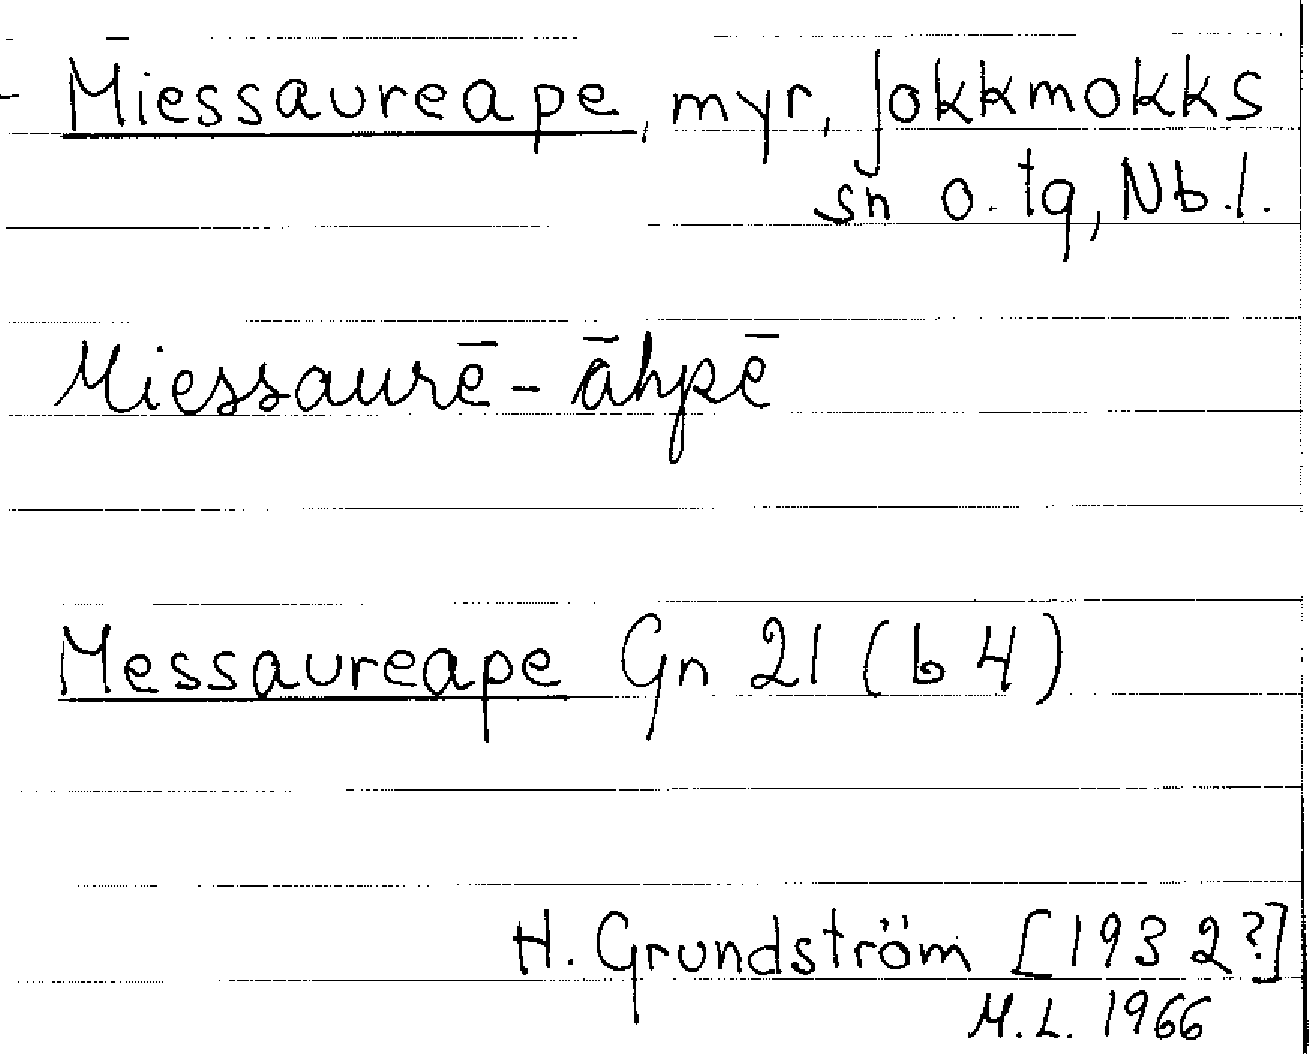 Miessaureape, myr, Jokkmokks
sn o. tg, Nb.l.
Miessaurē-āhpē
Messaureape Gn 21 (b 4)
H. Grundström [1932?]
M.L. 1966